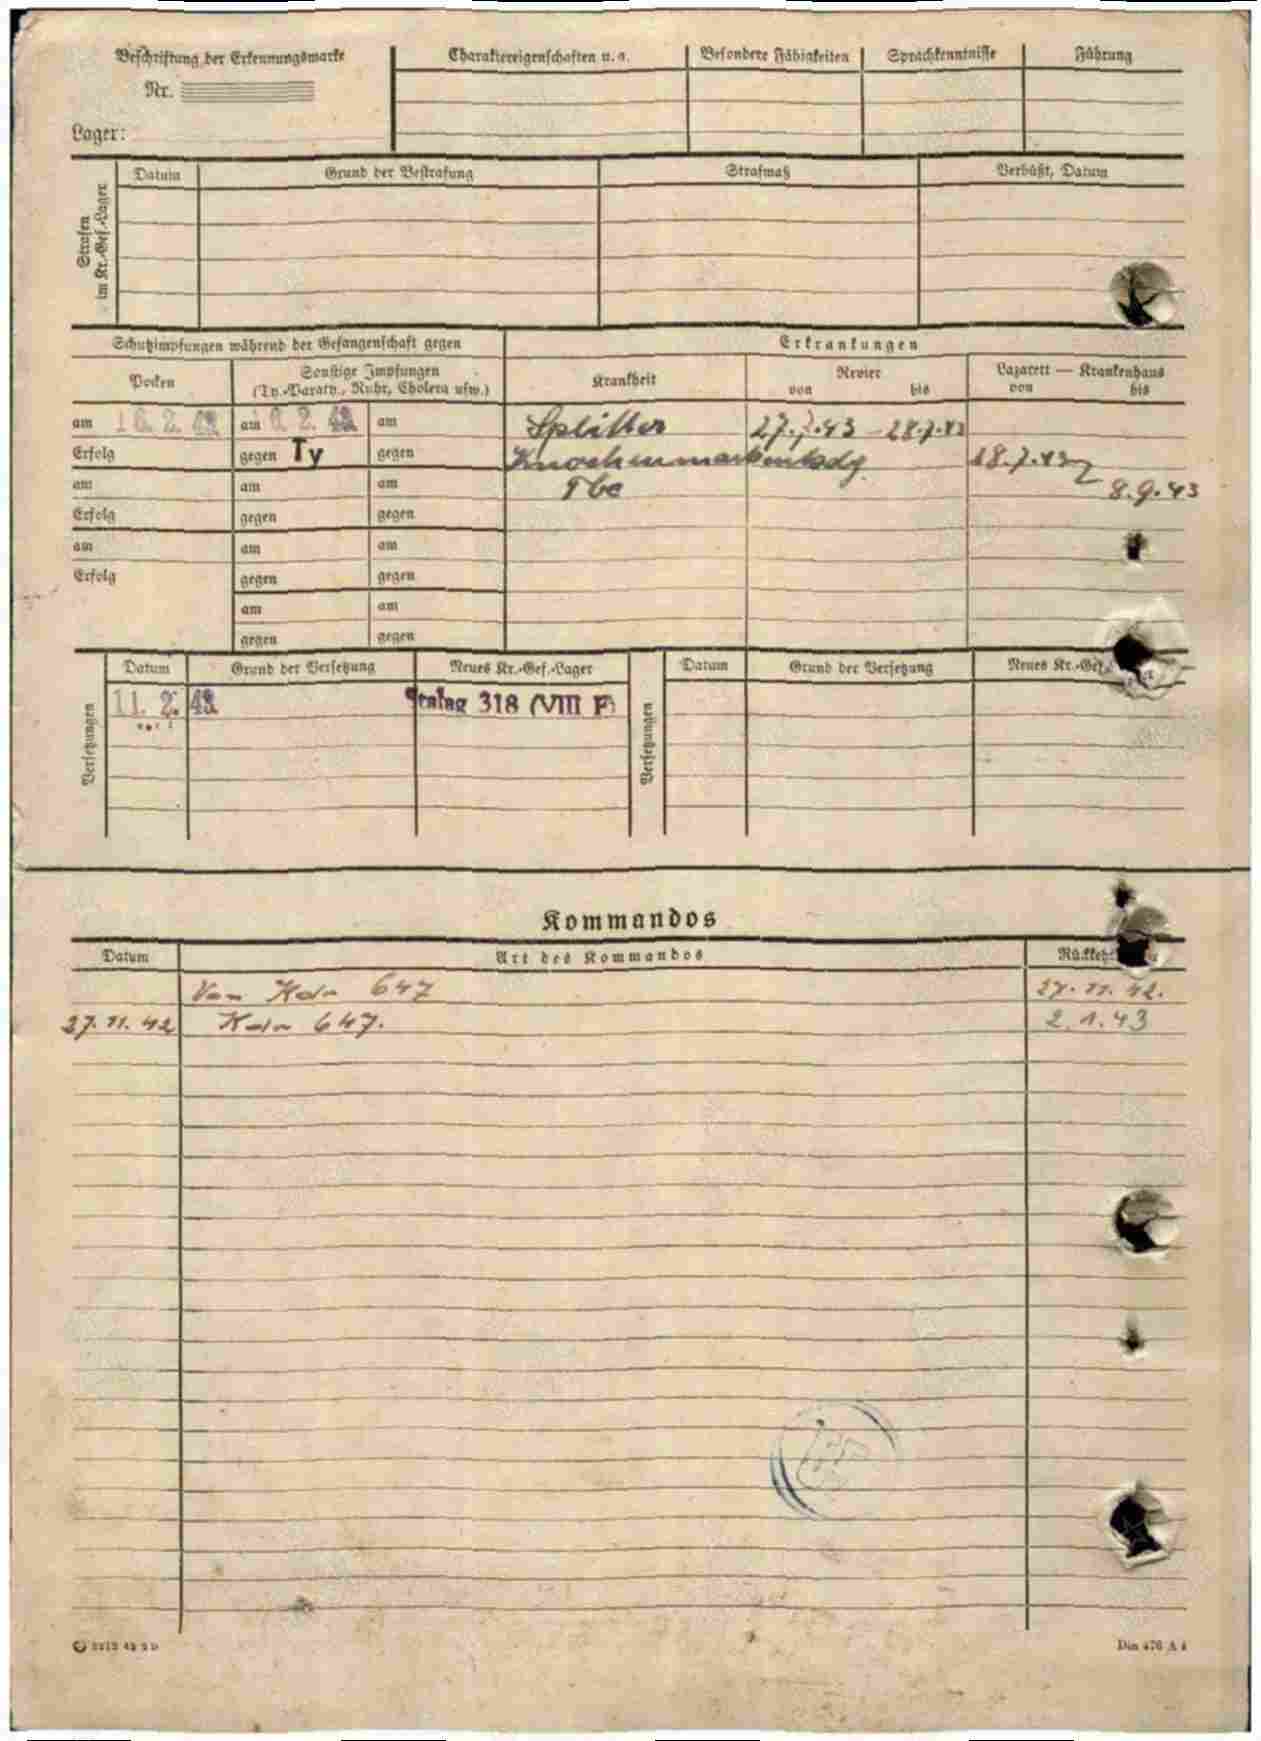 Beschriftung der Erkennungsmarke
Nr.
Lager:
Charaktereigenschaften u. a.
Besondere Fähigkeiten
Sprachkenntnisse
Führung
Strafen
im Kr.-Gef.-Lager
Datum
Grund der Bestrafung
Strafmaß
Verbüßt, Datum
Schutzimpfungen während der Gefangenschaft gegen
Erkrankungen
Pocken
Sonstige Impfungen
(Ty.-Paraty., Ruhr, Cholera usw.)
Krankheit
Revier
von bis
Lazarett — Krankenhaus
von bis
am 16. 2. 43 am 16. 2. 43 am
Splitter 27.7.43 - 28.7.43
Erfolg gegen Ty gegen
Knochenmarkentzdg. 28.7.43
am am am
Tbc 8.9.43
Erfolg gegen gegen
am am am
Erfolg gegen gegen
am am
gegen gegen
Versetzungen
Datum Grund der Versetzung Neues Kr.-Gef.-Lager
11. 2. 43 Stalag 318 (VIII F)
Versetzungen
Datum Grund der Versetzung Neues Kr.-Gef.
Kommandos
Datum Art des Kommandos
Von Kdo 647 27. 11. 42.
27. 11. 42 Kdo 647. 2. 1. 43
Din 476 A 4